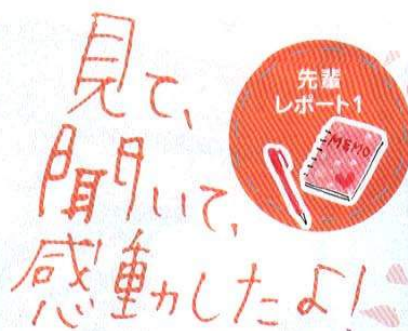 見て、
聞いて、
感動したよ!
先輩
レポート1
MEMO